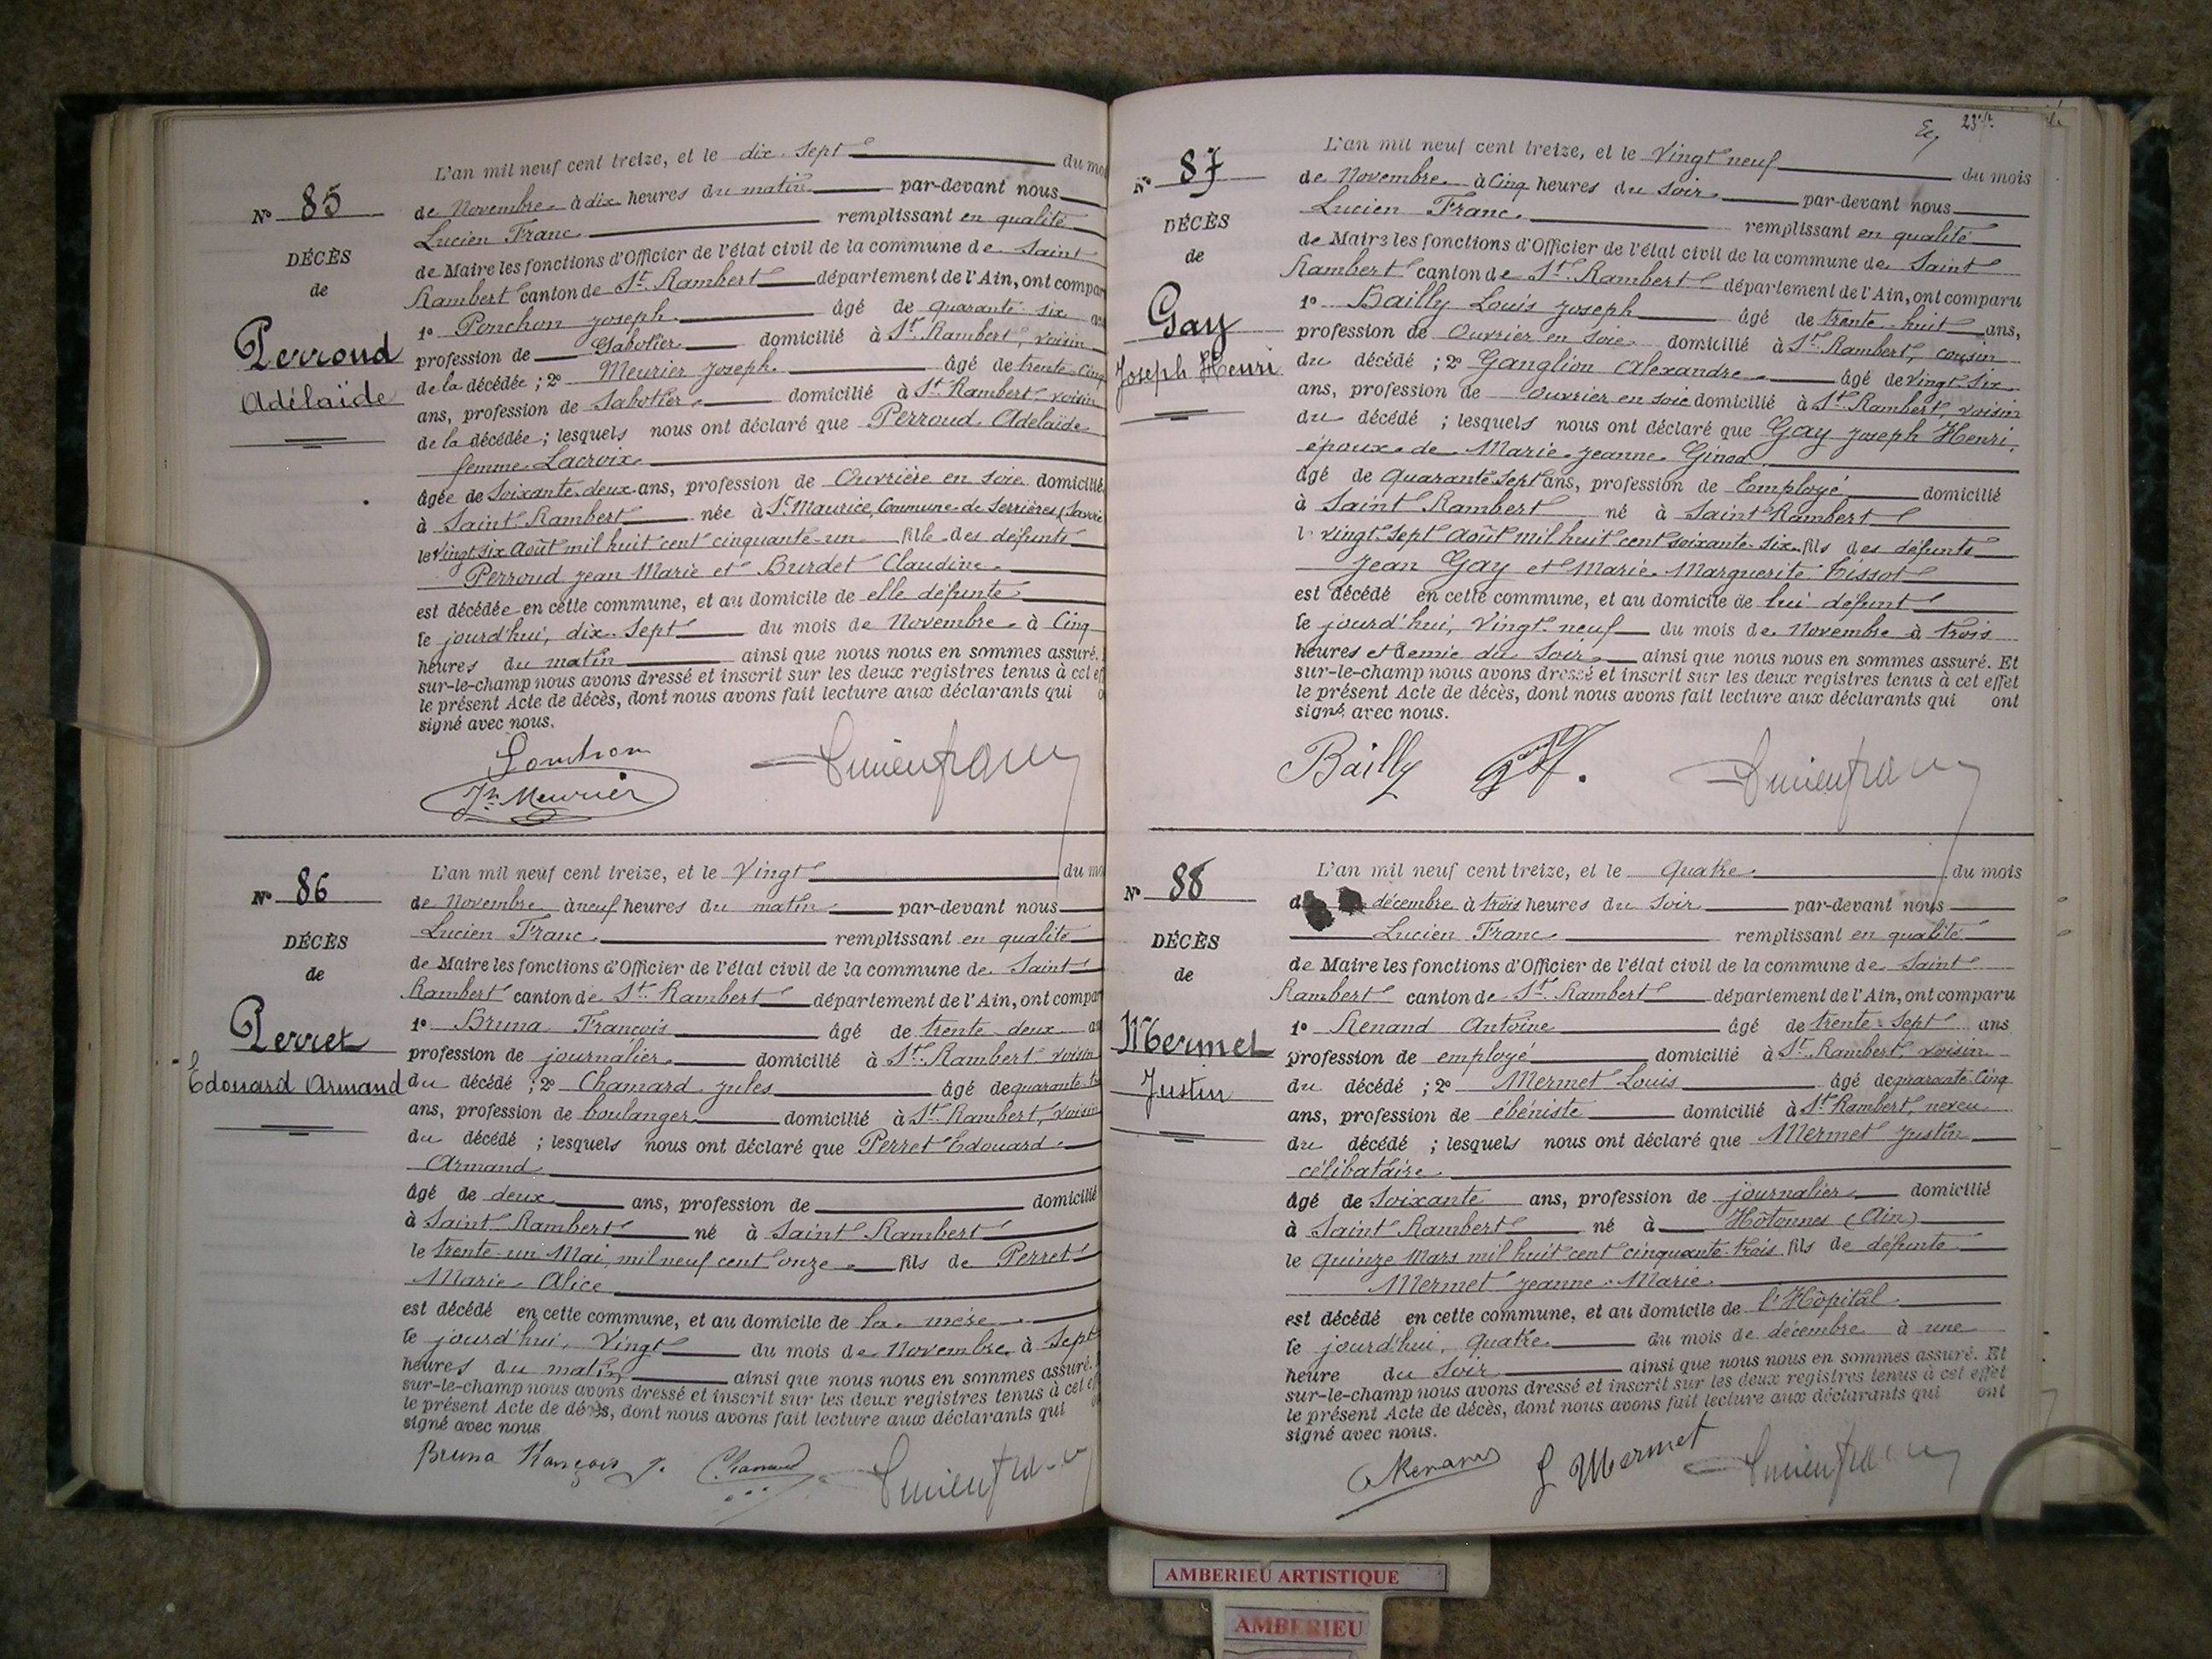 N° 85
DÉCÈS
de
Perroud
Adélaïde
L'an mil neuf cent treize, et le dix-sept du mo
de Novembre à dix heures du matin par-devant nous
Lucien Franc remplissant en qualité
de Maire les fonctions d'Officier de l'état civil de la commune de Saint
Rambert canton de St Rambert département de l'Ain, ont compar
1° Ponchon Joseph âgé de quarante six
profession de Sabotier domicilié à St Rambert, voisin
de la décédée ; 2° Meurier Joseph âgé de trente-cinq
ans, profession de Sabotier domicilié à St Rambert voisin
de la décédée ; lesquels nous ont déclaré que Perroud Adélaïde
femme Lacroix
âgée de Soixante deux ans, profession de Ouvrière en soie domicilié
à Saint Rambert née à St Maurice, Commune de Serrières (Savoie
le vingt six Août mil huit cent cinquante-un fille des défunts
Perroud Jean Marie et Burdet Claudine
est décédée en cette commune, et au domicile de elle défunte
le jourd'hui, dix-sept du mois de Novembre à Cinq
heures du matin ainsi que nous nous en sommes assuré.
sur-le-champ nous avons dressé et inscrit sur les deux registres tenus à cet ef
le présent Acte de décès, dont nous avons fait lecture aux déclarants qui o
signé avec nous.
Jh Meurier
N° 86
DÉCÈS
de
Perret
Edouard Armand
L'an mil neuf cent treize, et le Vingt du mo
de Novembre à neuf heures du matin par-devant nous
Lucien Franc remplissant en qualité
de Maire les fonctions d'Officier de l'état civil de la commune de Saint
Rambert canton de St Rambert département de l'Ain, ont compar
1° Bruna François âgé de trente-deux
profession de journalier domicilié à St Rambert voisin
du décédé ; 2° Chamard Jules âgé de quarante-
ans, profession de boulanger domicilié à St Rambert, voisin
du décédé ; lesquels nous ont déclaré que Perret Edouard
Armand
âgé de deux ans, profession de domicilié
à Saint Rambert né à Saint Rambert
le trente-un Mai mil neuf cent onze fils de Perret
Marie Alice
est décédé en cette commune, et au domicile de la mère
le jourd'hui, Vingt du mois de Novembre à Sept
heures du matin ainsi que nous nous en sommes assuré.
sur-le-champ nous avons dressé et inscrit sur les deux registres tenus à cet ef
le présent Acte de décès, dont nous avons fait lecture aux déclarants qui
signé avec nous
Bruna François J. Chamard Lucien Franc
23
N° 87
DÉCÈS
de
Gay
Joseph Henri
L'an mil neuf cent treize, et le Vingt neuf du mois
de Novembre à Cinq heures du Soir par-devant nous
Lucien Franc remplissant en qualité
de Maire les fonctions d'Officier de l'état civil de la commune de Saint
Rambert canton de St Rambert département de l'Ain, ont comparu
1° Bailly Louis Joseph âgé de trente-huit ans,
profession de Ouvrier en soie domicilié à St Rambert, cousin
du décédé ; 2° Ganglion Alexandre âgé de vingt-six
ans, profession de Ouvrier en soie domicilié à St Rambert, voisin
du décédé ; lesquels nous ont déclaré que Gay Joseph Henri,
époux de Marie Jeanne Ginod
âgé de Quarante Sept ans, profession de Employé domicilié
à Saint Rambert né à Saint Rambert
l vingt-sept Août mil huit cent soixante-six fils des défunts
Jean Gay et Marie Marguerite Tissot
est décédé en cette commune, et au domicile de lui défunt
le jourd'hui, Vingt-neuf du mois de Novembre à trois
heures et demie du Soir ainsi que nous nous en sommes assuré. Et
sur-le-champ nous avons dressé et inscrit sur les deux registres tenus à cet effet
le présent Acte de décès, dont nous avons fait lecture aux déclarants qui ont
signé avec nous.
Bailly Lucien Franc
N° 88
DÉCÈS
de
Mermet
Justin
L'an mil neuf cent treize, et le Quatre du mois
décembre à trois heures du Soir par-devant nous
Lucien Franc remplissant en qualité
de Maire les fonctions d'Officier de l'état civil de la commune de Saint
Rambert canton de St Rambert département de l'Ain, ont comparu
1° Renand Antoine âgé de trente-sept ans
profession de employé domicilié à St Rambert, voisin
du décédé ; 2° Mermet Louis âgé de quarante-Cinq
ans, profession de ébéniste domicilié à St Rambert, neveu
du décédé ; lesquels nous ont déclaré que Mermet Justin
célibataire
âgé de Soixante ans, profession de journalier domicilié
à Saint Rambert né à Hôtonnes (Ain)
le Quinze Mars mil huit cent cinquante-trois fils de défunte
Mermet Jeanne-Marie
est décédé en cette commune, et au domicile de l'Hôpital
le jourd'hui, Quatre du mois de décembre à une
heure du Soir ainsi que nous nous en sommes assuré. Et
sur-le-champ nous avons dressé et inscrit sur les deux registres tenus à cet effet
le présent Acte de décès, dont nous avons fait lecture aux déclarants qui ont
signé avec nous.
Renand L Mermet Lucien Franc
AMBERIEU ARTISTIQUE
AMBERIEU